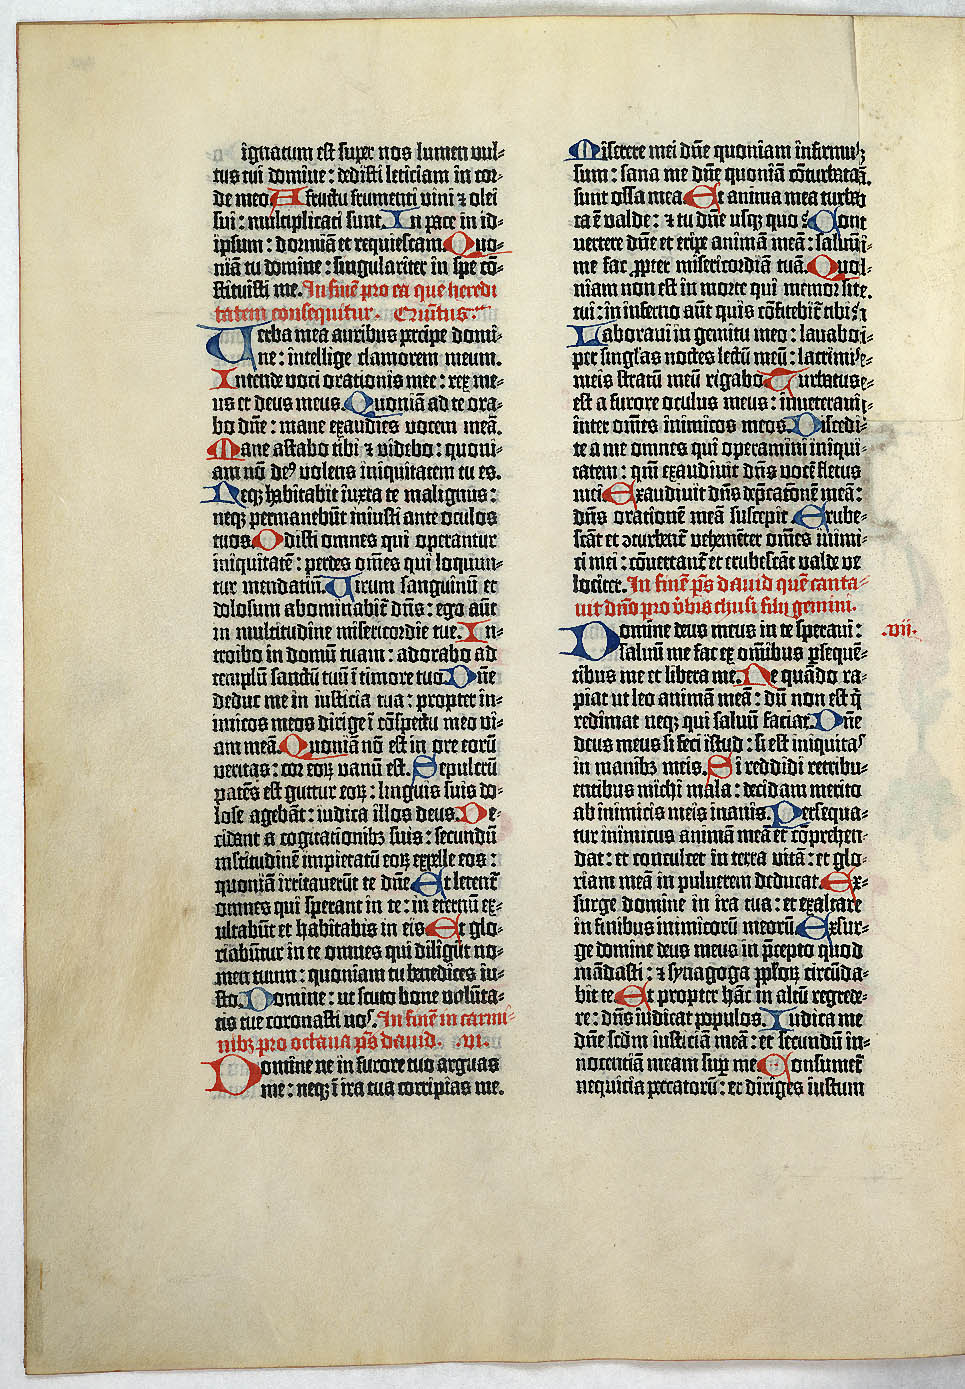 ignatum est super nos lumen vul⸗
tus tui domine : dedisti leticiam in cor⸗
de meo. A fructu frumenti vini ⁊ olei
sui : multiplicati sunt. In pace in id⸗
ipsum : dormiā et requiescam. Quo⸗
niā tu domine : singulariter in spe cō⸗
stituisti me. In finē pro ea que heredi
tatem consequitur.
Verba mea auribus percipe domi⸗
ne : intellige clamorem meum.
Intende voci orationis mee : rex me⸗
us et deus meus. Quoniā ad te ora⸗
bo dn̄e : mane exaudies vocem meā.
Mane astabo tibi ⁊ videbo : quoni⸗
am nō deꝰ volens iniquitatem tu es.
Neqꝫ habitabit iuxta te malignus :
neqꝫ permanebūt iniusti ante oculos
tuos. Odisti omnes qui operantur
iniquitatē : perdes om̄es qui loqun⸗
tur mendatiū. Virum sanguinū et
dolosum abominabit̄ dn̄s : ego aūt
in multitudine misericordie tue. In⸗
troibo in domū tuam : adorabo ad
templū sanctū tuū ī timore tuo. Dn̄e
deduc me in iusticia tua : propter in⸗
imicos meos dirige ī cōspectu meo vi⸗
am meā. Quoniā nō est in ore eorū
veritas : cor eoꝝ vanū est. Sepulcrū
patēs est guttur eoꝝ : linguis suis do⸗
lose agebāt : iudica illos deus. De⸗
cidant a cogitationibꝫ suis : secundū
multitudinē impietatū eoꝝ expelle eos :
quoniā irritaverūt te dn̄e. Et letent̄
omnes qui sperant in te : in eternū ex⸗
ultabūt et habitabis in eis. Et glo⸗
riabūtur in te omnes qui diligūt no⸗
men tuum : quoniam tu benedices iu⸗
sto. Domine : ut scuto bone volūta⸗
tis tue coronasti nos. In finē in carmi⸗
nibꝫ pro octava ps̄ david. .vi.
Domine ne in furore tuo arguas
me : neqꝫ ī ira tua corripias me.
Miserere mei dn̄e quoniam infirmus
sum : sana me dn̄e quoniā cōturbata
sunt ossa mea. Et anima mea turba
ta ē valde : ⁊ tu dn̄e usqꝫ quo? Cont
vertere dn̄e et eripe animā meā : salvū⸗
me fac ꝓpter misericordiā tuā. Quo⸗
niam non est in morte qui memor sit
tui : in inferno aūt quis cōfitebit̄ tibi?
Laboravi in gemitu meo : lavabo
per singl̄as noctes lectū meū : lacrimis
meis stratū meū rigabo. Turbatus
est a furore oculus meus : inveteravi
inter om̄es inimicos meos. Discedi⸗
te a me omnes qui operamini iniqui⸗
tatem : qm̄ exaudivit dn̄s vocē fletus
mei. Exaudivit dn̄s dep̄catōnē meā :
dn̄s orationē meā suscepit. Erube⸗
scāt et ꝯturbent̄ vehemēter om̄es inimi⸗
ci mei : cōvertant̄ et erubescāt valde ve
lociter. In finē ps̄ david quē canta⸗
vit dn̄o pro v̄bis chusi filij gemini.
Domine deus meus in te speravi : .vii.
salvū me fac ex om̄ibus ꝑsequē⸗
tibus me et libera me. Ne quādo ra⸗
piat ut leo animā meā : dū non est q̄
redimat neqꝫ qui salvū faciat. Dn̄e
deus meus si feci istud : si est iniquitas
in manibꝫ meis. Si reddidi retribu⸗
entibus michi mala : decidam merito
ab inimicis meis inanis. Persequa⸗
tur inimicus animā meā et cōprehen⸗
dat : et conculcet in terra vitā : et glo⸗
riam meā in pulverem deducat. Ex⸗
surge domine in ira tua : et exaltare
in finibus inimicorū meorū. Exsur⸗
ge domine deus meus in p̄cepto quod
mādasti : ⁊ synagoga pplōꝝ circūda⸗
bit te. Et propter hāc in altū regrede⸗
re : dn̄s iudicat populos. Iudica me
dn̄e scd̄m iusticiā meā : et secundū in⸗
nocentiā meam suꝑ me. Consumet̄
nequitia peccatorū : et diriges iustum